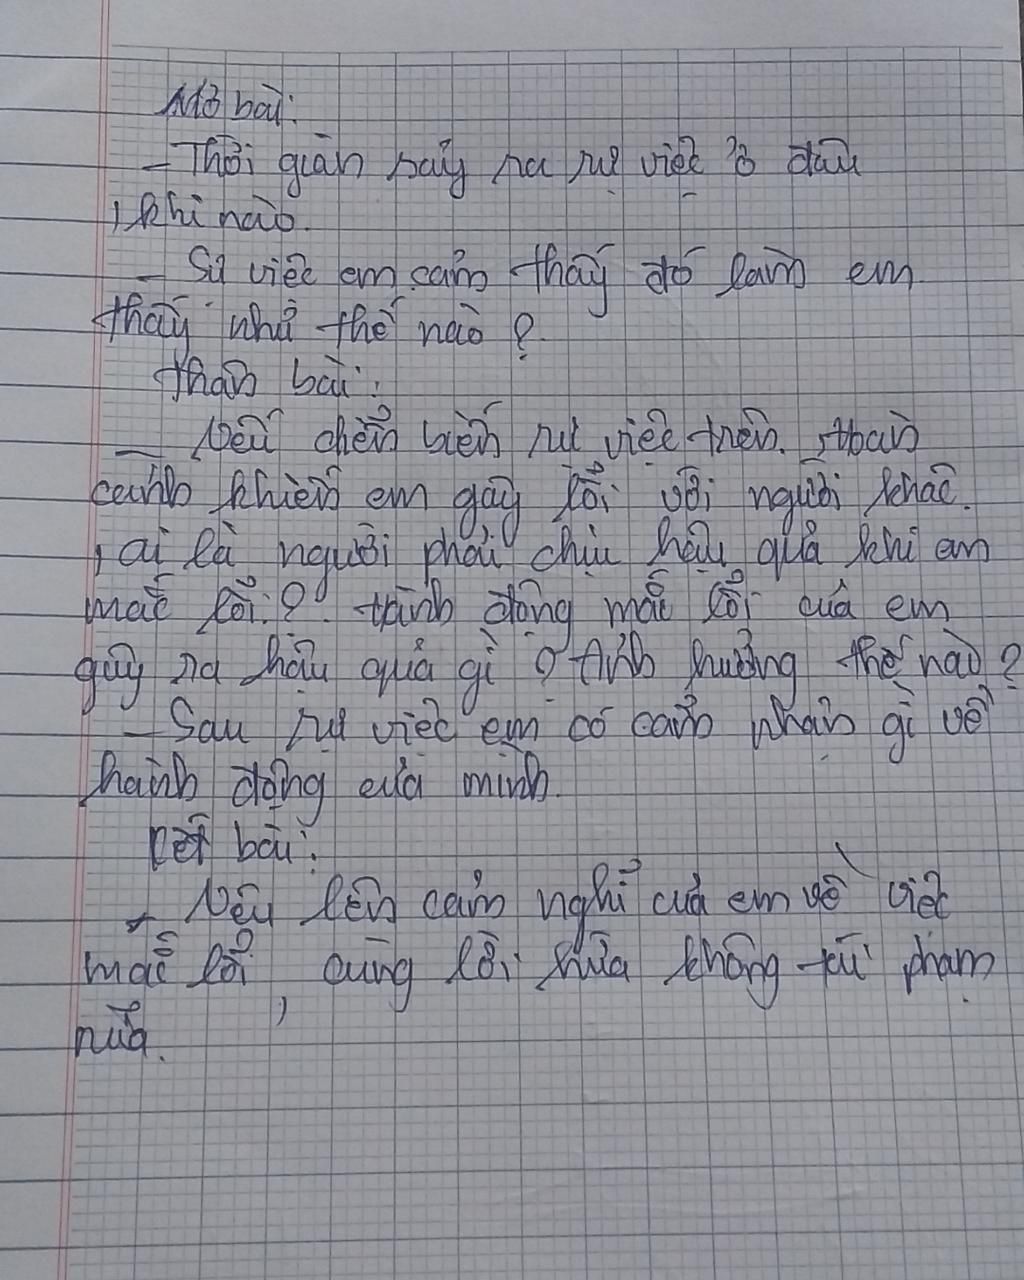 Mở bài:
- Thời giản sảy ra sự việc ở đâu
, khi nào.
- Sự việc em cảm thấy đó làm em
thấy như thế nào ?
thân bài:
- Nêu diễn biến sự việc trên. Hoàn
cảnh khiến em gây lỗi với người khác.
, ai là người phải chịu hậu quả khi em
mắc lỗi ? Hành động mắc lỗi của em
gây ra hậu quả gì ? Ảnh hưởng thế nào ?
- Sau sự việc em có cảm nhận gì về
hành động của mình.
Kết bài:
- Nêu lên cảm nghĩ của em về việc
mắc lỗi, cùng lời hứa không tái phạm
nữa.